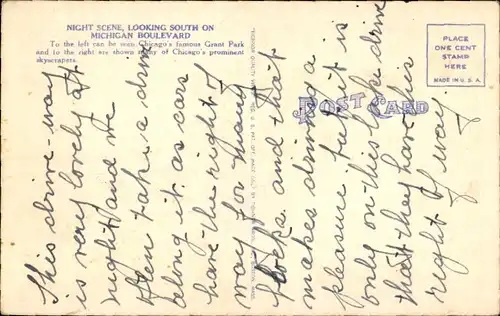 NIGHT SCENE, LOOKING SOUTH ON
MICHIGAN BOULEVARD
To the left can be seen Chicago's famous Grant Park
and to the right are shown many of Chicago's prominent
skyscrapers.
POST CARD
PLACE
ONE CENT
STAMP
HERE
MADE IN U.S.A.
This drive-way
is very lovely at
night and we
often take a drive
along it as cars
have the right of
way for many
blocks and that
makes driving a
pleasure but it is
only on this lake drive
that they have this
right of way